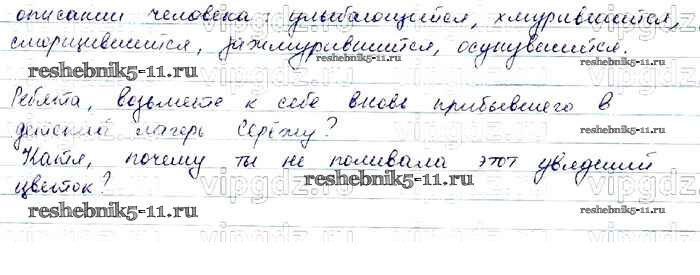 описании человека: улыбающийся, хмурившийся,
сморщившийся, зажмурившийся, осунувшийся.
reshebnik5-11.ru. reshebnik5-11.ru.
Ребята, возьмете к себе вновь прибывшего в
детский лагерь Серёжу?
Катя, почему ты не поливала этот увядший
цветок?
reshebnik5-11.ru reshebnik5-11.ru
vipgdz.ru